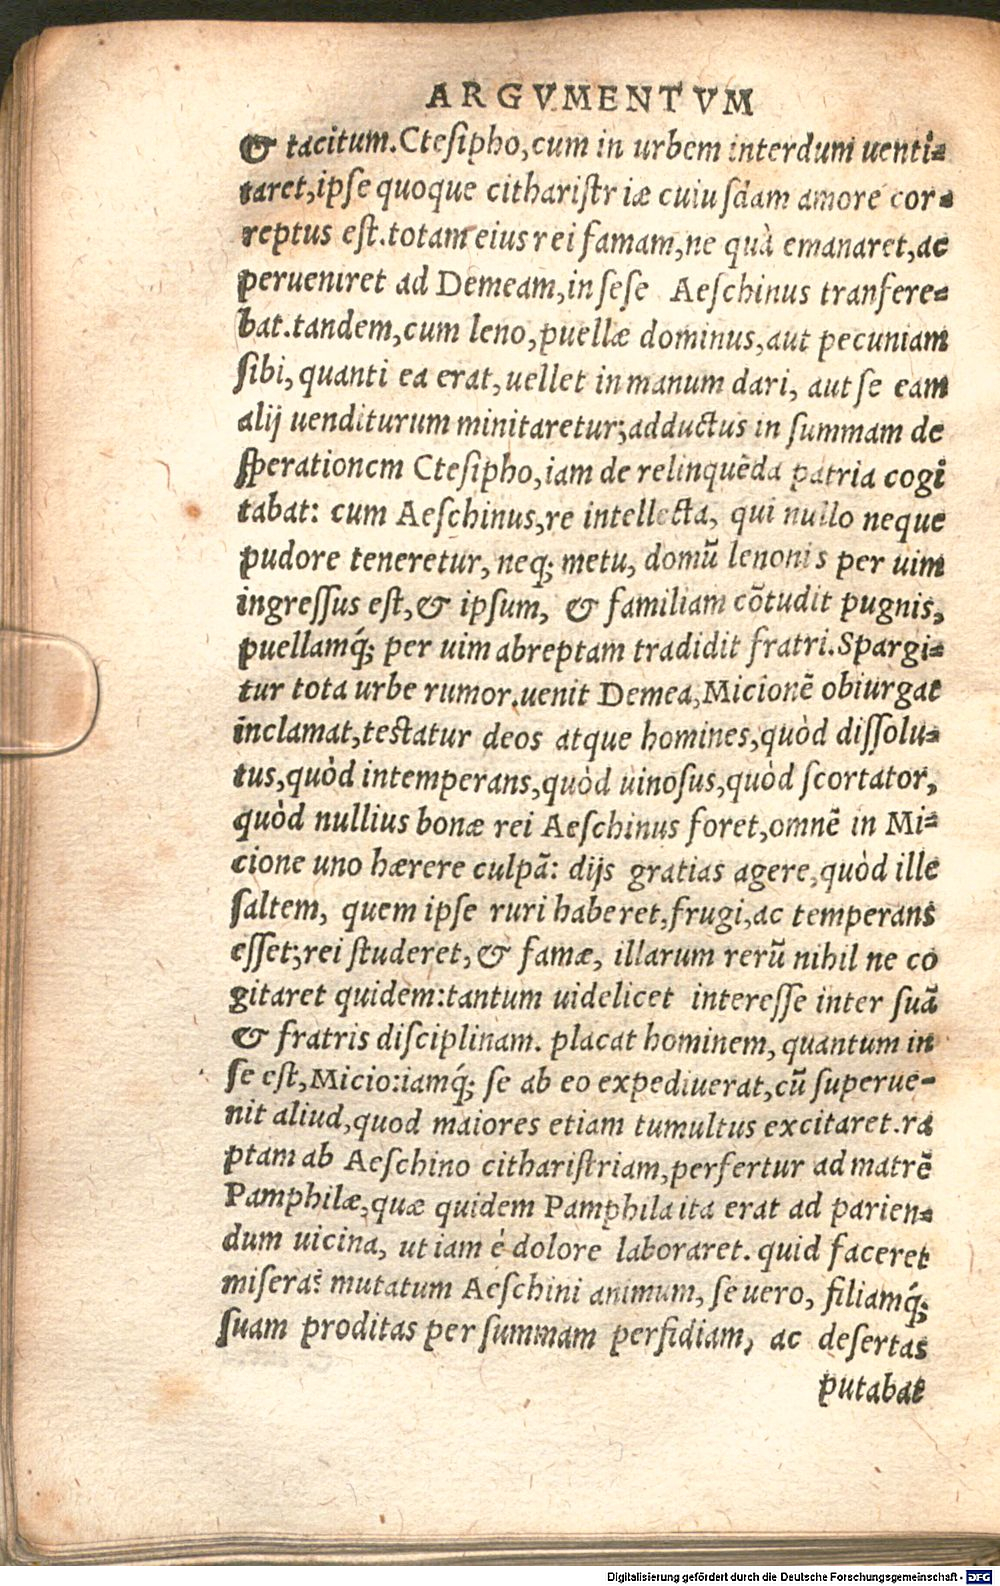 ARGVMENTVM
& tacitum. Ctesipho, cum in urbem interdum uenti-
taret, ipse quoque citharistriæ cuiusdam amore cor-
reptus est. totam eius rei famam, ne quà emanaret, ac
perueniret ad Demeam, in sese Aeschinus tranfere-
bat. tandem, cum leno, puellæ dominus, aut pecuniam
sibi, quanti ea erat, uellet in manum dari, aut se eam
alij uenditurum minitaretur; adductus in summam de
sperationem Ctesipho, iam de relinquēda patria cogi
tabat: cum Aeschinus, re intellecta, qui nullo neque
pudore teneretur, neq; metu, domū lenonis per uim
ingressus est, & ipsum, & familiam cōtudit pugnis,
puellamq́; per uim abreptam tradidit fratri. Spargi-
tur tota urbe rumor. uenit Demea, Micionē obiurgat
inclamat, testatur deos atque homines, quòd dissolu-
tus, quòd intemperans, quòd uinosus, quòd scortator,
quòd nullius bonæ rei Aeschinus foret, omnē in Mi-
cione uno hærere culpā: dijs gratias agere, quòd ille
saltem, quem ipse ruri haberet, frugi, ac temperans
esset; rei studeret, & famæ, illarum rerū nihil ne co
gitaret quidem: tantum uidelicet interesse inter suā
& fratris disciplinam. placat hominem, quantum in
se est, Micio: iamq́; se ab eo expediuerat, cū superue-
nit aliud, quod maiores etiam tumultus excitaret. ra
ptam ab Aeschino citharistriam, perfertur ad matrē
Pamphilæ, quæ quidem Pamphila ita erat ad parien-
dum uicina, ut iam è dolore laboraret. quid faceret
misera? mutatum Aeschini animum, se uero, filiamq́;
suam proditas per summam perfidiam, ac desertas
putabat
Digitalisierung gefördert durch die Deutsche Forschungsgemeinschaft - DFG